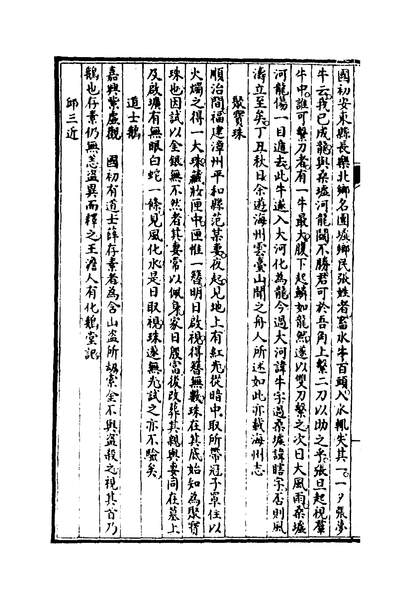 國初安東縣長樂北鄉名團墟鄉民張姓者畜水牛百頭入水輒失其一一夕張夢
牛云我已成龍與桑墟河龍鬭不勝君可於吾角上繫二刀以助之乎張旦起視羣
牛中誰可繫刀者有一牛最大腹下起鱗如龍然遂以雙刀繫之次日大風雨桑墟
河龍傷一目遁去此牛遂入大河化為龍今過大河諱牛字過桑墟諱瞎字否則風
濤立至矣丁丑秋日余遊海州雲臺山聞之舟人所述如此亦載海州志
聚寶珠
順治間福建漳州平和縣范某妻夜起見地上有紅光從暗中取所帶冠子罩住以
火燭之得一大珠藏妝匣中匣惟一簪明日啟視得簪無數珠在其底始知為聚寶
珠也因試以金銀無不然者其妻常以佩身家日殷富後改葬其親與妻同在墓上
及啟壙有無眼白蛇一條見風化水是日取視珠遂無光試之亦不驗矣
道士鵝
嘉興紫虛觀 國初有道士薛存素者為含山盜所劫索金不與盜殺之視其首乃
鵝也存素仍無恙盜異而釋之王澹人有化鵝堂記
邱三近